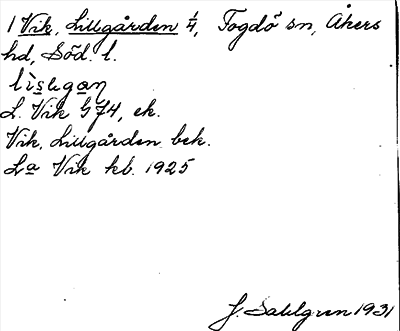 1 Vik, Lillgården 1/4, Fogdö sn, Åkers
hd, Söd. l.
L. Vik G74, ek.
Vik, Lillgården bek.
La Vik kb. 1925
J. Sahlgren 1931